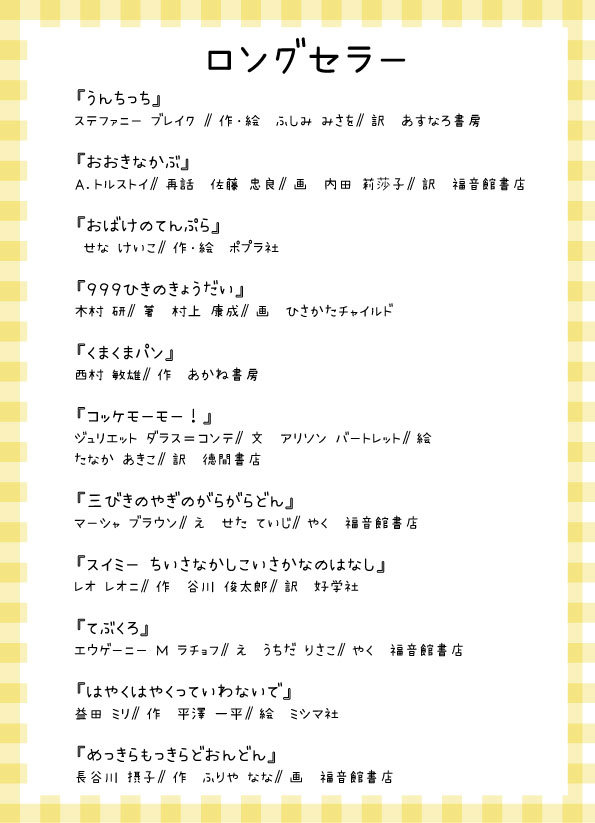 ロングセラー
『うんちっち』
ステファニー ブレイク // 作・絵　ふしみ みさを// 訳　あすなろ書房
『おおきなかぶ』
A.トルストイ// 再話　佐藤 忠良// 画　内田 莉莎子// 訳　福音館書店
『おばけのてんぷら』
せな けいこ// 作・絵　ポプラ社
『999ひきのきょうだい』
木村 研// 著　村上 康成// 画　ひさかたチャイルド
『くまくまパン』
西村 敏雄// 作　あかね書房
『コッケモーモー！』
ジュリエット ダラス＝コンテ// 文　アリソン バートレット// 絵
たなか あきこ// 訳　徳間書店
『三びきのやぎのがらがらどん』
マーシャ ブラウン// え　せた ていじ// やく　福音館書店
『スイミー ちいさなかしこいさかなのはなし』
レオ レオニ// 作　谷川 俊太郎// 訳　好学社
『てぶくろ』
エウゲーニー M ラチョフ// え　うちだ りさこ// やく　福音館書店
『はやくはやくっていわないで』
益田 ミリ// 作　平澤 一平// 絵　ミシマ社
『めっきらもっきらどおんどん』
長谷川 摂子// 作　ふりや なな// 画　福音館書店